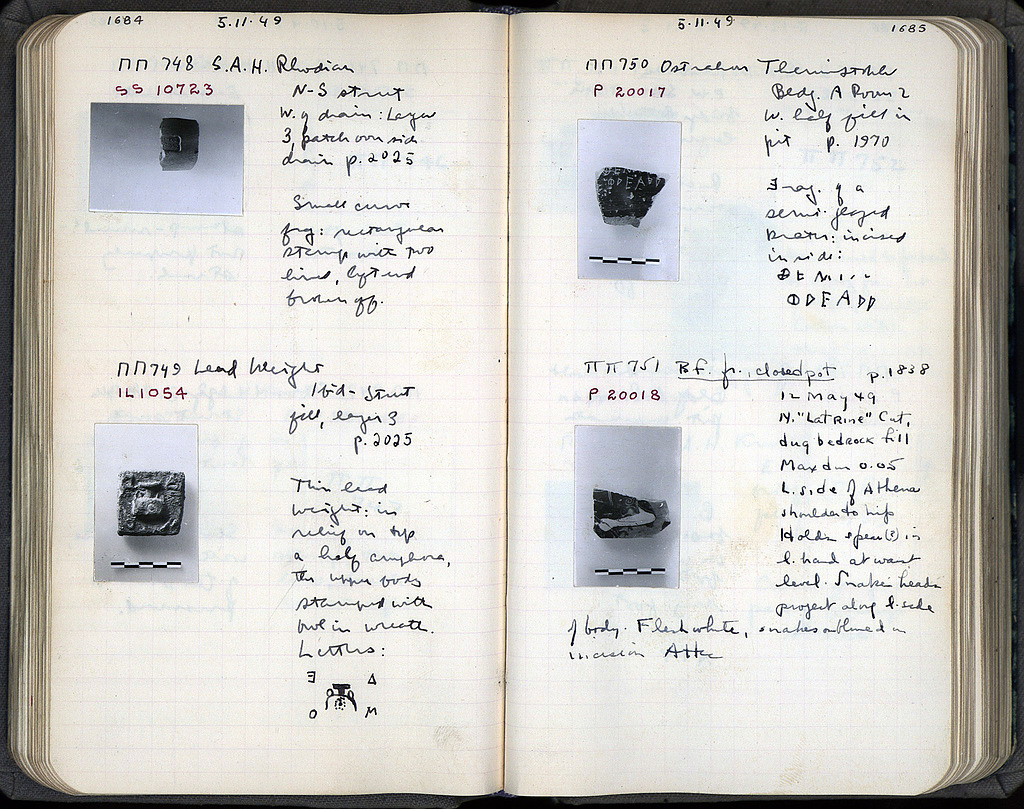 1684
5.11.49
ΠΠ 748 S.A.H. Rhodian
SS 10723
N-S street
W. of drain: Layer
3, patch over side
drain p. 2025
Small curve
frag: rectangular
stamp with two
lines, left end
broken off.
ΠΠ 749 Lead Weight
IL 1054
Ibid- Street
fill, layer 3
p. 2025
Thin lead
weight: in
relief on top
a half amphora,
the upper body
stamped with
owl in wreath.
Letters:
Ǝ Δ
O M
5.11.49
1685
ΠΠ 750 Ostrakon Themistokles
P 20017
Bldg. A Room 2
W. half fill in
pit p. 1970
Frag. of a
semi-glazed
krater: incised
inside:
ΘEMI
ΦDEADD
ΠΠ 751 B.f. fr., closed pot p. 1838
P 20018
12 May 49
N. "Latrine" Cut,
dug bedrock fill
Max dim 0.05
L. side of Athena
shoulder to hip
Holdin spear(?) in
l. hand at waist
level. Snake heads
project along l. side
of body. Flesh white, snakes outlined in
incision Attic